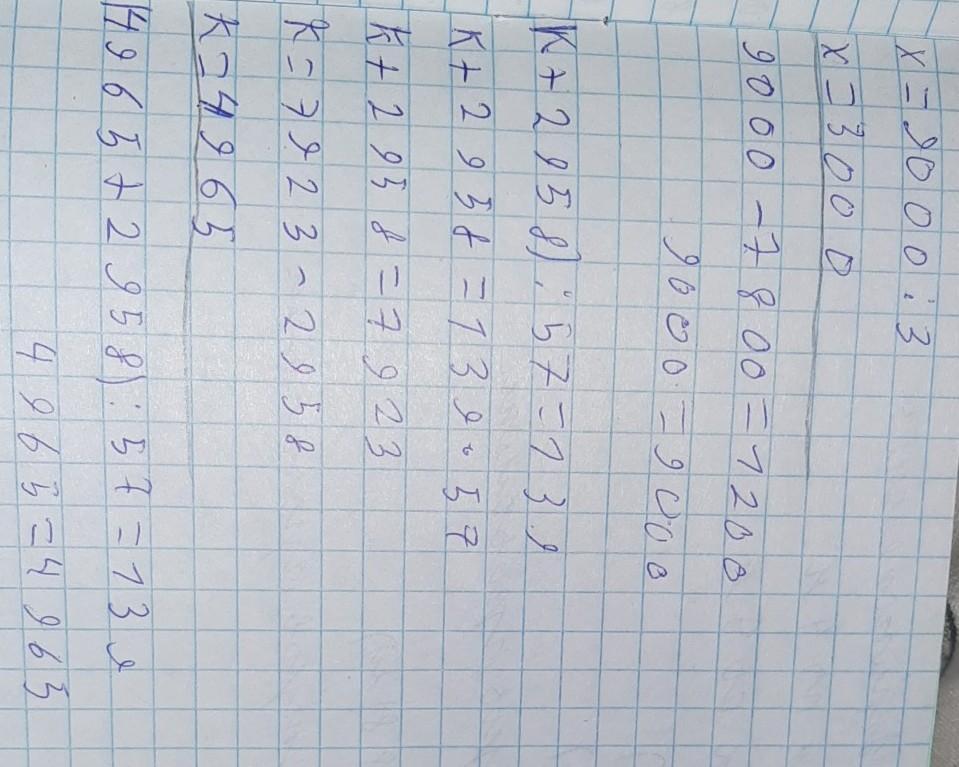 x=9000:3
x=3000
9000-7800=1200
9000=9000
K+2958):57=139
K+2958=139·57
K+2958=7923
K=7923-2958
K=4965
4965+2958):57=139
4965=4965